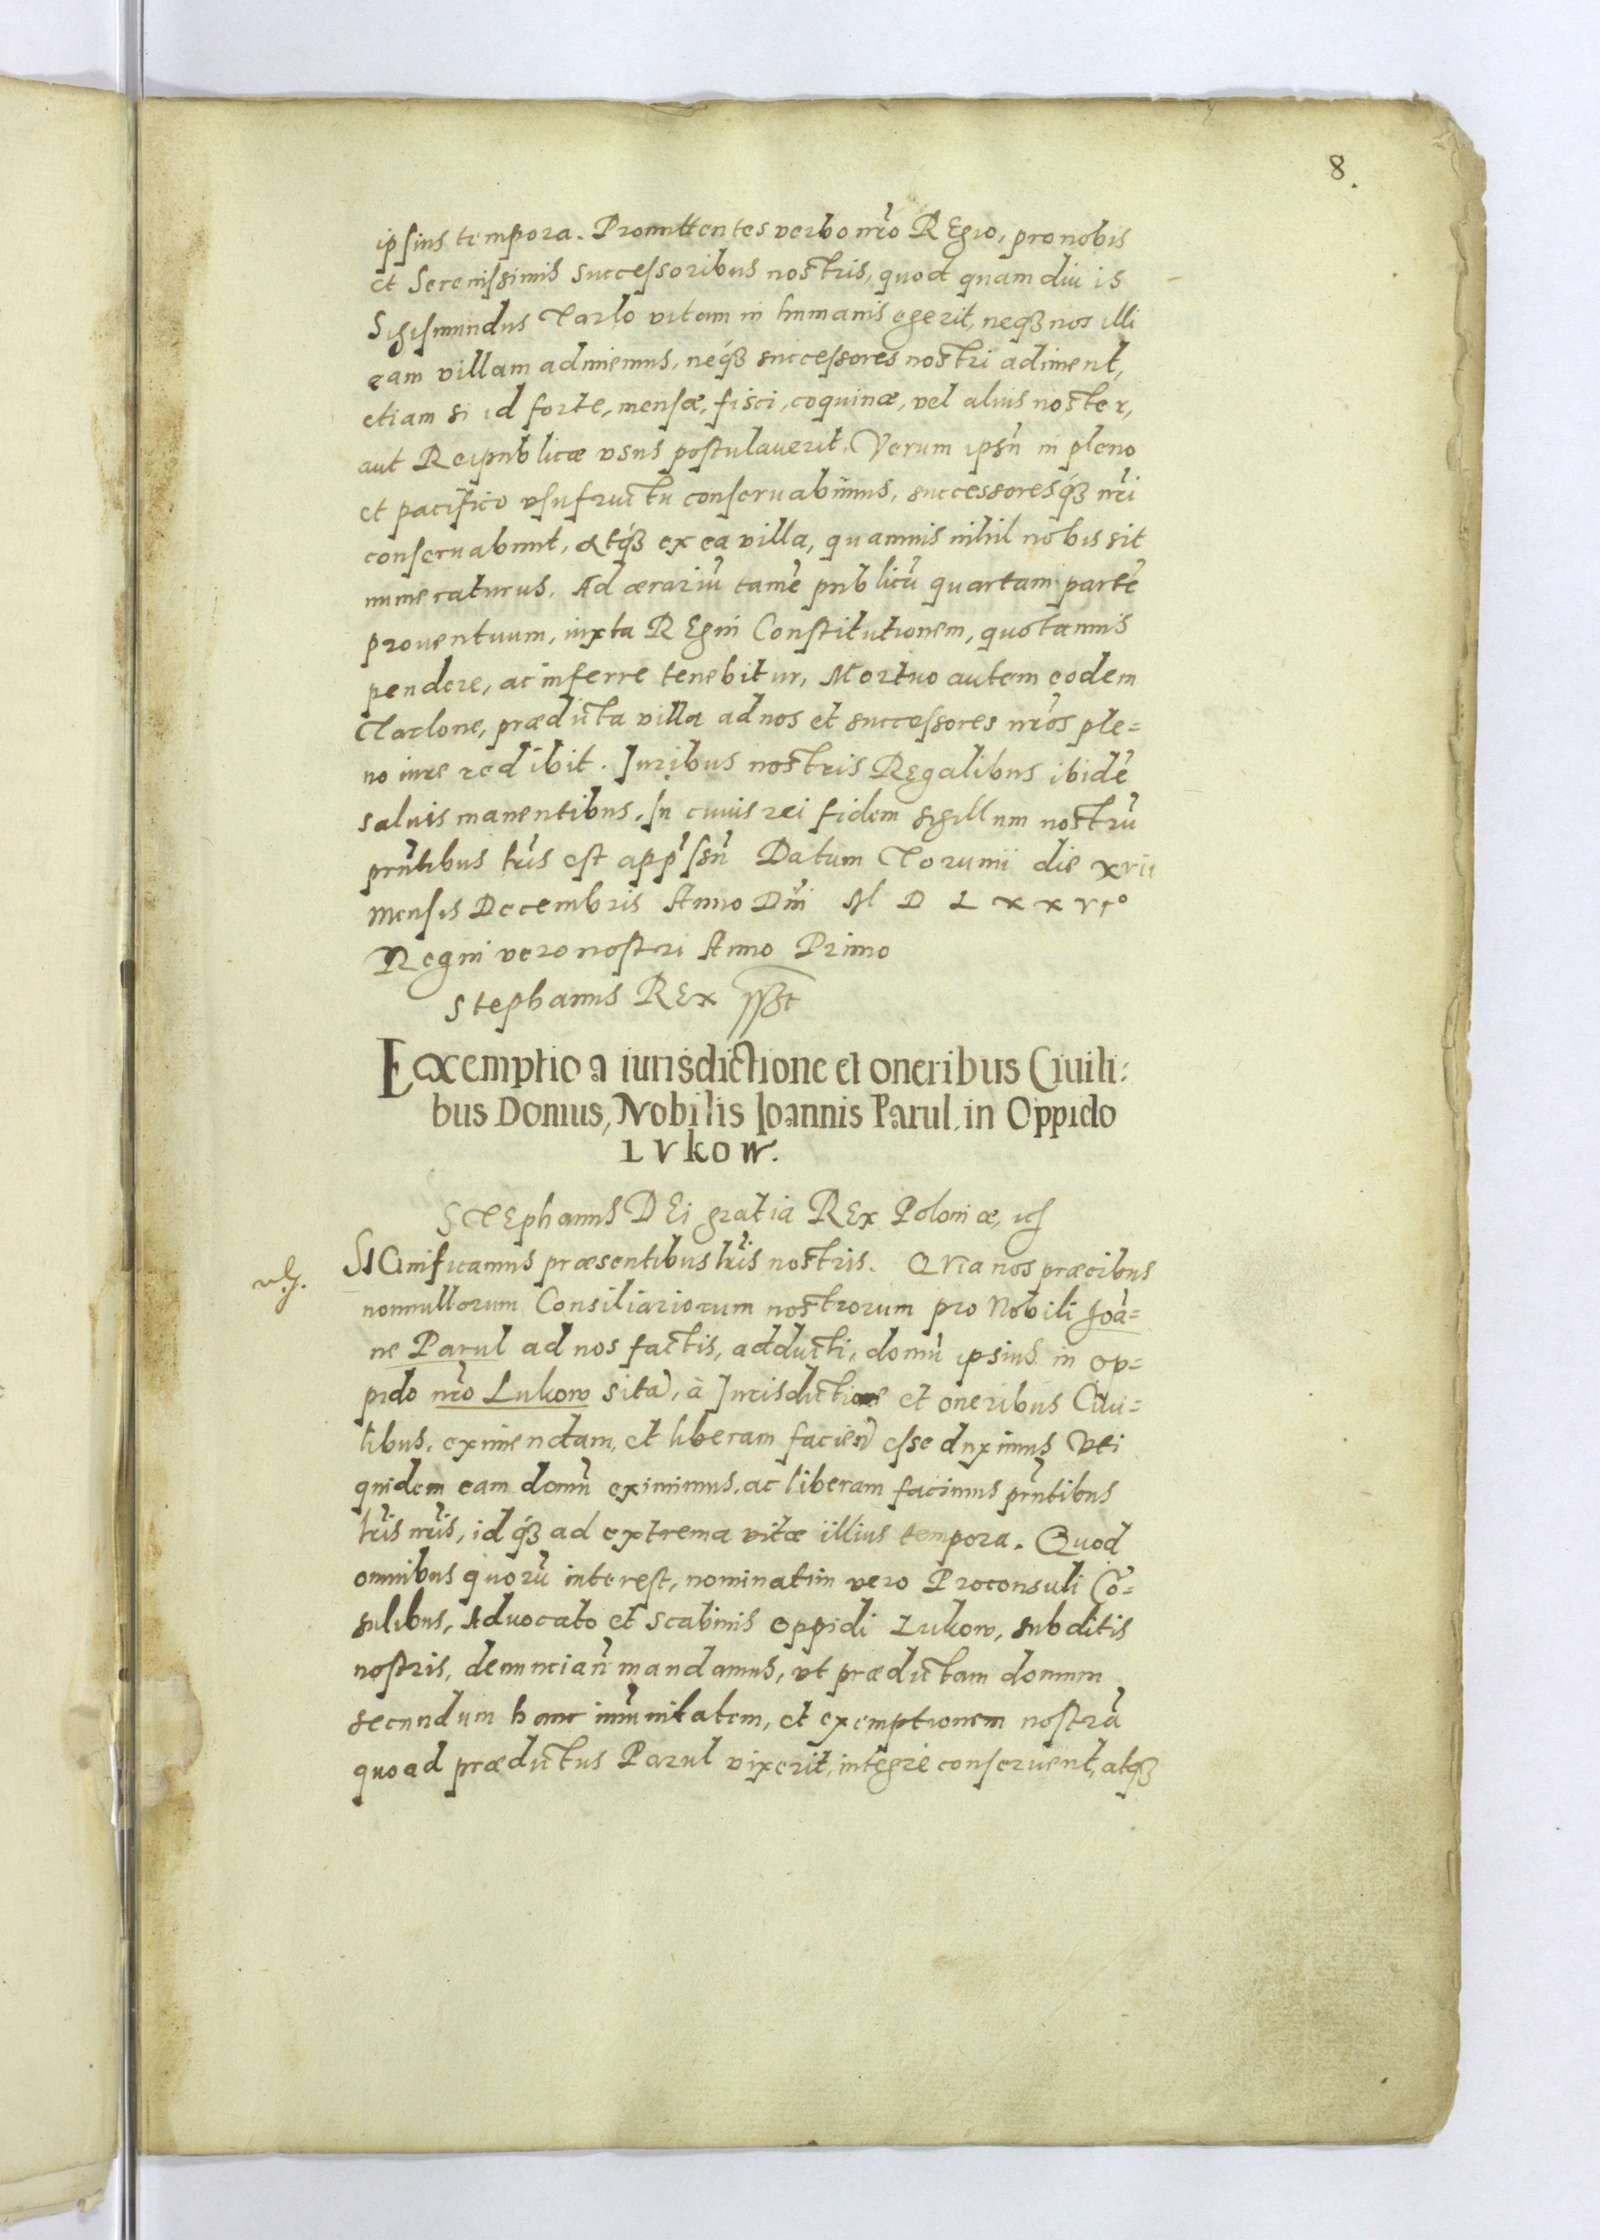 8.
ipsius tempora. Promittentes verbo nr̃o REgio, pro nobis
et Serenissimis Successoribus nostris, quod quam diu is
Sigismundus Tarlo vitam in humanis egerit, neqꝫ nos illi
eam villam adimemus, neqꝫ successores nostri adiment,
etiam si id forte, mensæ, fisci, coquinæ, vel alius noster,
aut Reipublicæ vsus postulauerit. Verum ipsũ in pleno
et pacifico vsufructu conseruabimus, successoresqꝫ nr̃i
conseruabunt, atqꝫ ex ea villa, quamuis nihil nobis sit
numeraturus. Ad ærariũ tamẽ publicũ quartam partẽ
prouentuum, iuxta REgni Constitutionem, quotannis
pendere, ac inferre tenebitur, Mortuo autem eodem
Tarlone, prædicta villa ad nos et successores nr̃os ple=
no iure redibit. Juribus nostris REgalibus ibidẽ
saluis manentibus. In cuius rei fidem sigillum nostrũ
prñtibus lr̃is est appr̃ssũ Datum Torunii die xvii
Mensis Decembris Anno Dñi M D L x x vi°
Regni vero nostri Anno Primo
Stephanus REx sst
Exemptio a iurisdictione et oneribus Ciuili:
bus Domus, Nobilis Ioannis Parul, in Oppido
LVkow.
STEphanus DEi gratia REx Poloniæ, &c
SIGnificamus præsentibus lr̃is nostris. QVia nos præcibus
nonnullorum Consiliariorum nostrorum pro Nobili Joã=
ne Parul ad nos factis, adducti, domũ ipsius in op=
pido nr̃o Lukow sitã, à Jurisdictione et oneribus Ciui=
libus, eximendam, et liberam faciend̃ esse duximus Vti
quidem eam domũ eximimus, ac liberam facimus prñtibus
lr̃is nr̃is, idqꝫ ad extrema vitæ illius tempora. Quod
omnibus quorũ interest, nominatim vero Proconsuli Cõ=
sulibus, Aduocato et Scabinis oppidi Lukow, subditis
nostris, denunciañ mandamus, vt prædictam domum
secundum hanc imũnitatem, et exemptionem nostrã
quoad prædictus Parul vixerit, integre conseruent, atqꝫ